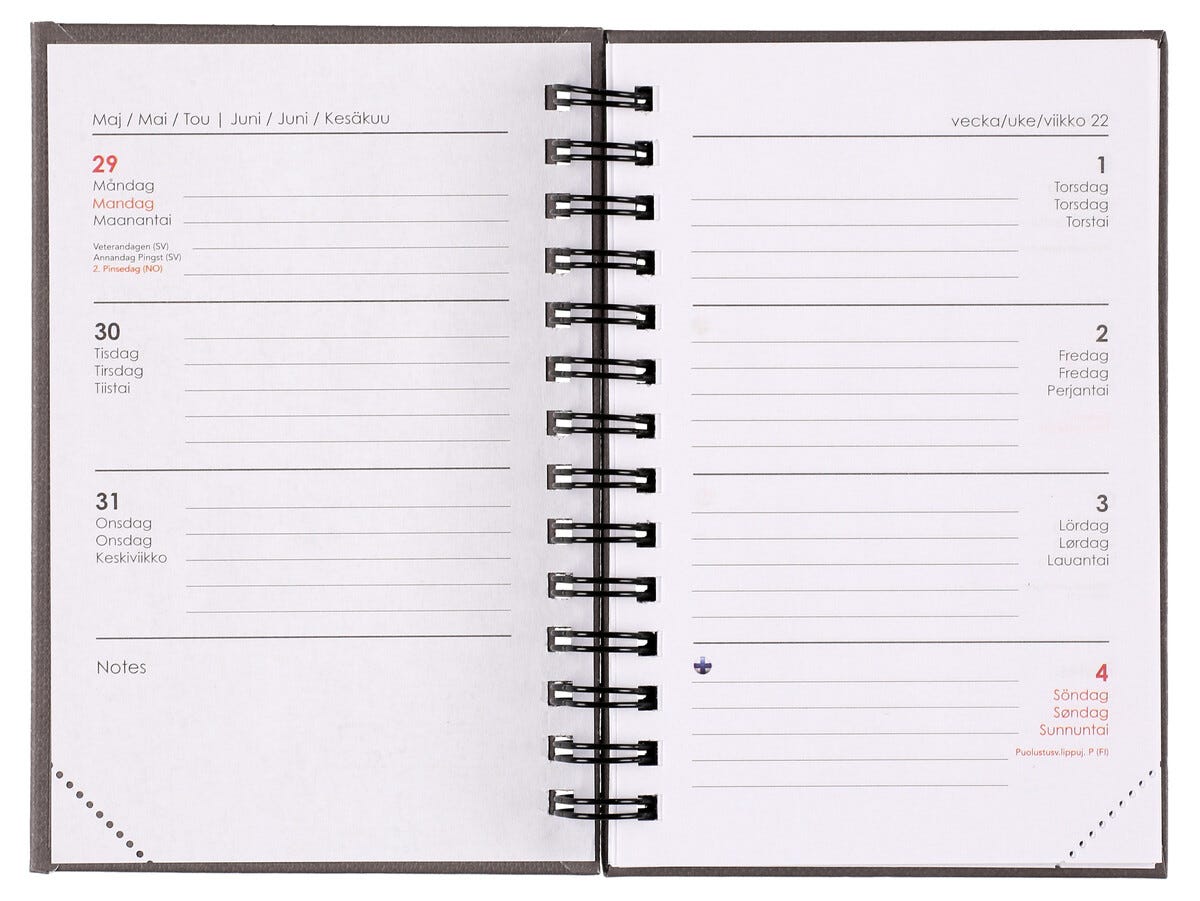 Maj / Mai / Tou | Juni / Juni / Kesäkuu
29
Måndag
Mandag
Maanantai
Veterandagen (SV)
Annandag Pingst (SV)
2. Pinsedag (NO)
30
Tisdag
Tirsdag
Tiistai
31
Onsdag
Onsdag
Keskiviikko
Notes
vecka/uke/viikko 22
1
Torsdag
Torsdag
Torstai
2
Fredag
Fredag
Perjantai
3
Lördag
Lørdag
Lauantai
4
Söndag
Søndag
Sunnuntai
Puolustusv.lippuj. P (FI)